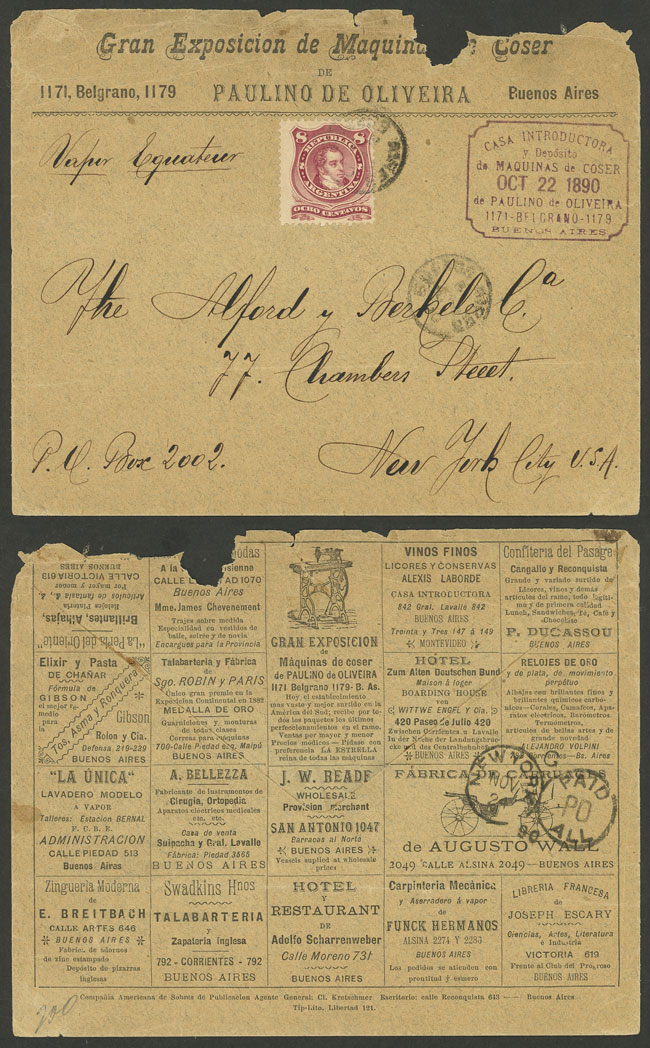 Gran Exposicion de Maquinas de Coser
DE
1171, Belgrano, 1179 PAULINO DE OLIVEIRA Buenos Aires
Vapor Equateur
8 REPUBLICA 8
ARGENTINA
OCHO CENTAVOS
CASA INTRODUCTORA
y Depósito
de MAQUINAS de COSER
OCT 22 1890
de PAULINO de OLIVEIRA
1171-BELGRANO-1179
BUENOS AIRES
The Alford y Berkele Ca
77. Chambers Street.
P. O. Box 2002. New York City U.S.A.
CALLE VICTORIA 619
BUENOS AIRES
Articulos de fantasía &., &.
Por mayor y menor
Relojes Platería
Brillantes, Alhajas,
"La Perla del Oriente"
modas
CALLE LIBERTAD 1070
Buenos Aires
Mme. James Chevenement
Trajes sobre medida
Especialidad en vestidos de
baile, soirée y de novia
Encargues para la Provincia
GRAN EXPOSICION
de
Máquinas de coser
de PAULINO de OLIVEIRA
1171 Belgrano 1179- B. As.
Hoy el establecimiento
mas vasto y mejor surtido en la
América del Sud; recibe por to-
dos los paquetes los últimos
perfeccionamientos en el ramo.
Ventas por mayor y menor
Precios módicos — Pidase con
preferencia LA ESTRELLA
reina de todas las máquinas
VINOS FINOS
LICORES Y CONSERVAS
ALEXIS LABORDE
CASA INTRODUCTORA
842 Gral. Lavalle 842
BUENOS AIRES
Treinta y Tres 147 á 149
MONTEVIDEO
Confiteria del Pasage
Cangallo y Reconquista
Grande y variado surtido de
Licores, vinos y demás
artículos del ramo, todo legí-
timo y de primera calidad
Lunch, Sandwiches, Té, Café y
Chocolate
P. DUCASSOU
BUENOS AIRES
Elixir y Pasta
DE CHAÑAR
Fórmula de
GIBSON
el mejor re-
medio para
la
Tos, Asma y Ronquera
Gibson
Rolon y Cia.
Defensa. 219-239
BUENOS AIRES
Talabartería y Fábrica
de
Sgo. ROBIN y PARIS
Unico gran premio en la
Exposicion Continental en 1882
MEDALLA DE ORO
Guarniciones y monturas
de todas clases
Correas para máquinas
700-Calle Piedad esq. Maipú
BUENOS AIRES
HOTEL
Zum Alten Deutschen Bund
Maison à loger
BOARDING HOUSE
von
WITTWE ENGEL y Cia.
420 Paseo de Julio 420
Zwischen Corrientes u Lavalle
in der Nähe der Landungsbrü-
cke und des Centralbahnhofes
BUENOS AIRES
RELOJES DE ORO
y de plata, de movimiento
perpétuo
Alhajas con brillantes finos y
brillantes químicos carbo-
nates— Corales, Camafeos, Apa-
ratos eléctricos, Barómetros
Termómetros,
artículos de bellas artes y de
grande novedad
ALEJANDRO VOLPINI
Corrientes—Bs. Aires
"LA ÚNICA"
LAVADERO MODELO
A VAPOR
Talleres: Estacion BERNAL
F. C. B. E.
ADMINISTRACION
CALLE PIEDAD 513
Buenos Aires
A. BELLEZZA
Fabricante de Instrumentos de
Cirugía, Ortopedia
Aparatos eléctricos medicales
etc. etc.
Casa de venta
Suipacha y Gral. Lavalle
Fábrica: Piedad, 3565
BUENOS AIRES
J. W. READE
WHOLESALE
Provision merchant
SAN ANTONIO 1047
Barracas al Norte
BUENOS AIRES
Vessels suplied at wholesale
prices
FÁBRICA DE CARRUAGES
de AUGUSTO WALL
2049 CALLE ALSINA 2049—BUENOS AIRES
NEW YORK
NOV
90
PAID
ALL
Zingueria Moderna
de
E. BREITBACH
CALLE ARTES 646
BUENOS AIRES
Fábrica de adornos
de zinc estampado
Depósito de pizarras
inglesas
Swadkins Hnos
TALABARTERIA
y
Zapateria Inglesa
792 - CORRIENTES - 792
BUENOS AIRES
HOTEL
Y
RESTAURANT
DE
Adolfo Scharrenweber
Calle Moreno 731
BUENOS AIRES
Carpinteria Mecánica
y Aserradero á vapor
de
FUNCK HERMANOS
ALSINA 2274 Y 2283
BUENOS AIRES
Los pedidos se atienden con
prontitud y esmero
LIBRERIA FRANCESA
de
JOSEPH ESCARY
Ciencias, Artes, Literatura
e Industria
VICTORIA 619
Frente al Club del Progreso
BUENOS AIRES
Compañia Americana de Sobres de Publicacion Agente General: Cl. Kretschmer Escritorio: calle Reconquista 643 — Buenos Aires
Tip-Lito, Libertad 121.
200